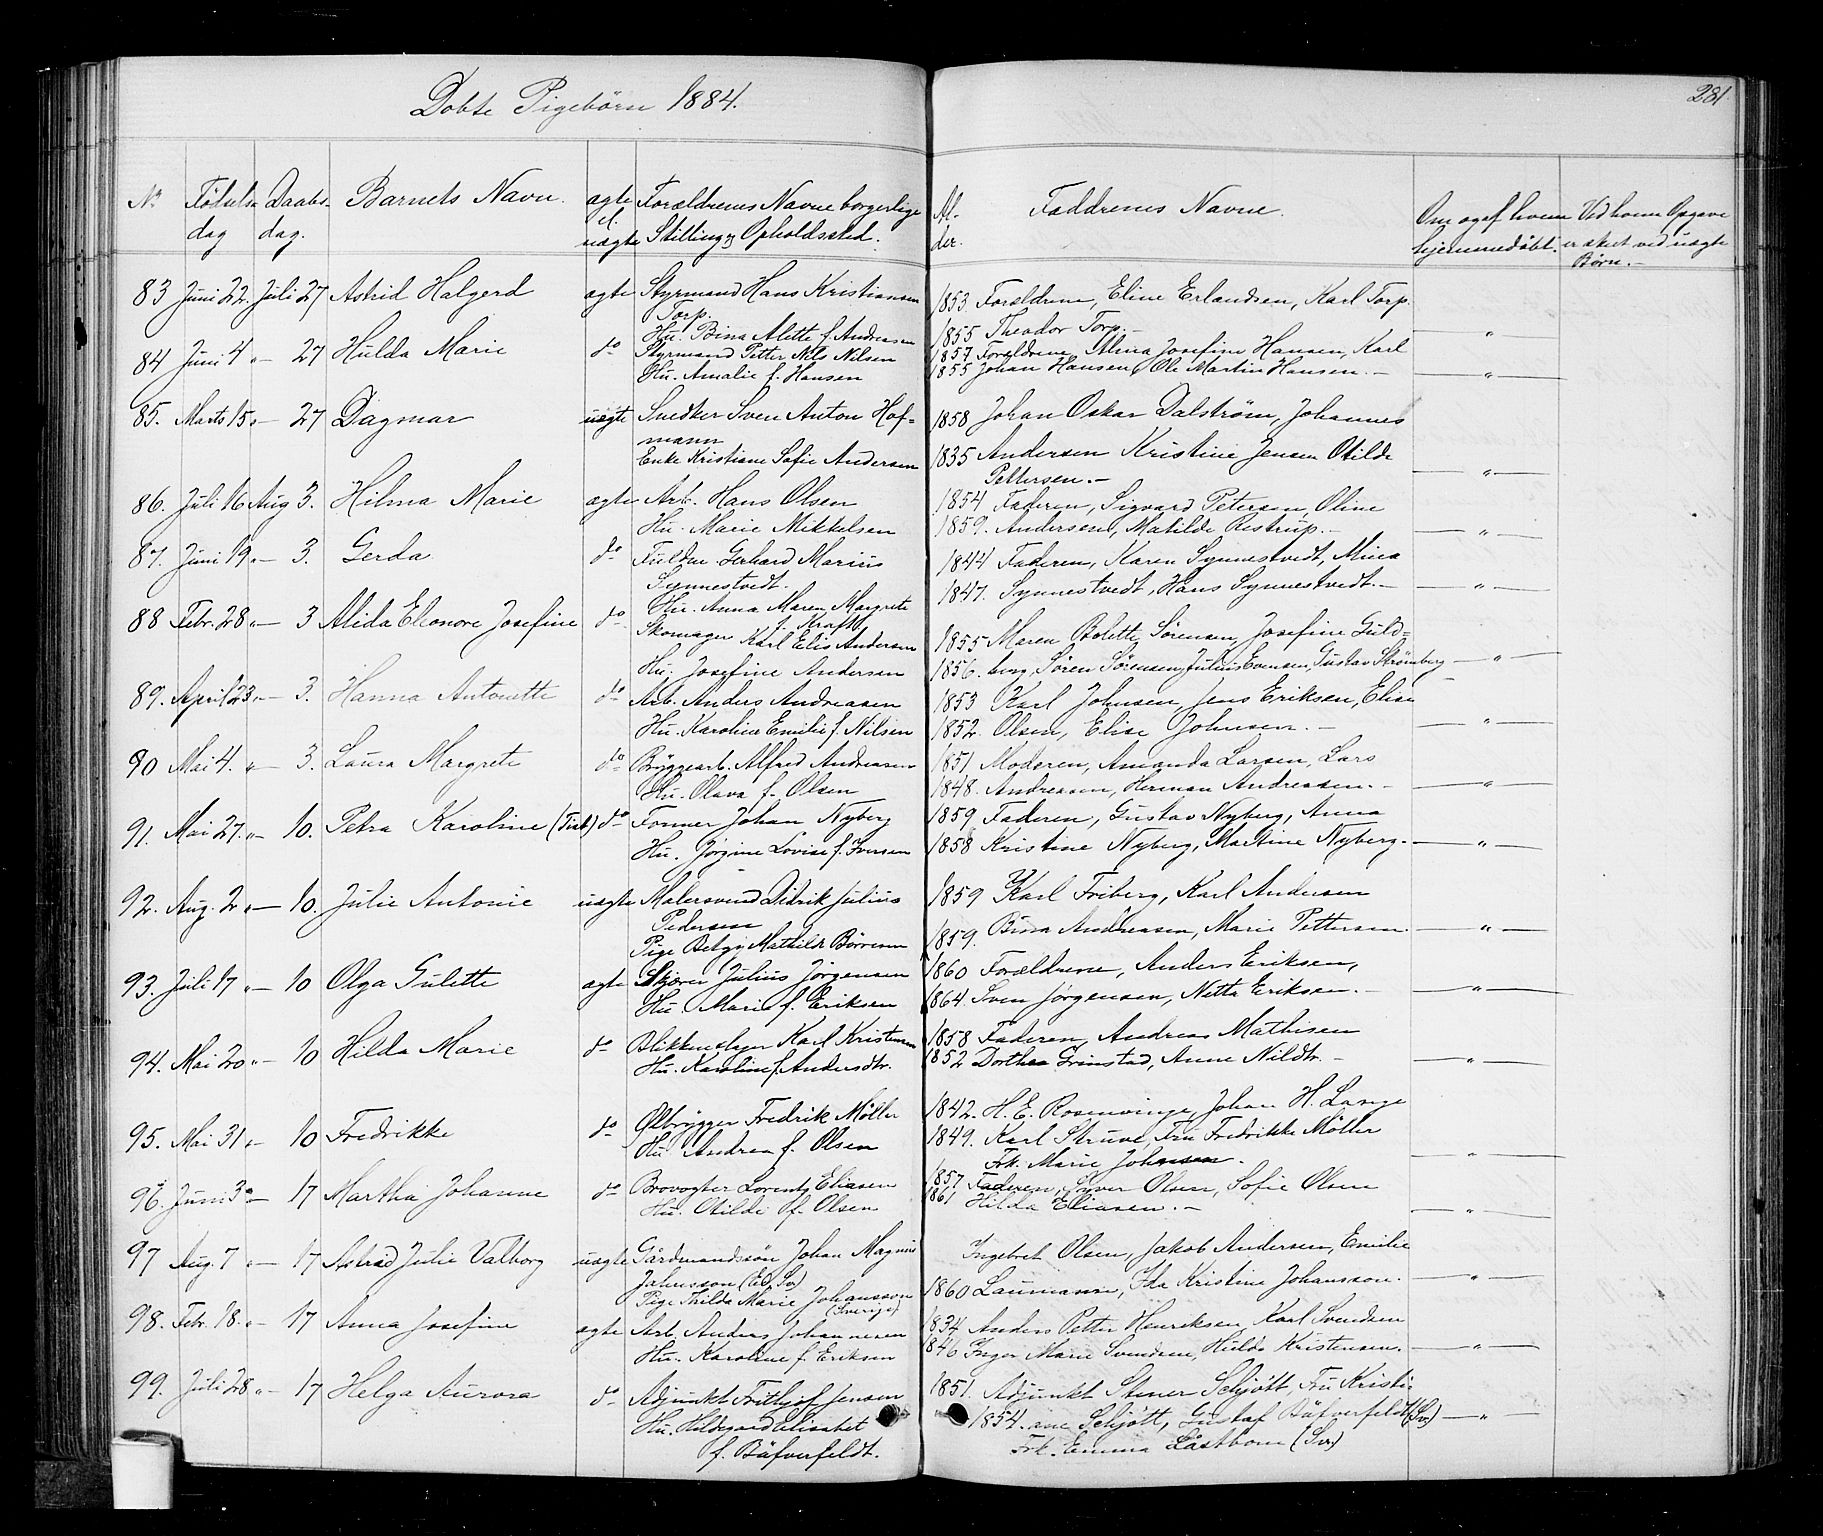 Døbte Pigebörn 1884.
281
No Fødsels Daabs- Barnets Navn. ægte Forældrenes Navne borgerlige Al- Faddrenes Navne. Om og af hvem Ved hvem Opgave
dag dag. el. uægte Stilling og Opholdssted. der. hjemmedøbt. er sket ved uægte Børn.-
83 Juni 22. Juli 27 Astrid Halgerd ægte Styrmand Hans Kristiansen 1853 Forældrene, Eline Erlandsen, Karl Torp.
Torp.
Hu. Bina Alette f. Andreasen 1855 Theodor Torp.- "
84 Juni 4 " 27 Hulda Marie do Styrmand Petter Nils Nilsen 1857 Forældrene, Alma Josefine Hansen, Karl
Hu. Amalie f. Hansen 1855 Johan Hansen, Ole Martin Hansen.- "
85. Marts 15 " 27 Dagmar uægte Snedker Sven Anton Hof= 1858 Johan Oskar Dalstrøm, Johannes
mann
Enke Kristiane Sofie Andersen 1835 Andersen Kristine Jensen Otilde
Pettersen.- "
86. Juli 16 Aug 3. Hilma Marie ægte Arb. Hans Olsen 1854 Faderen, Sigvard Petersen, Oline
Hu. Marie Mikkelsen 1859. Andersen, Matilde Restrup.- "
87. Juni 19 " 3. Gerda do Gerhard Marius 1844 Faderen, Karen Synnestvedt, Mina
Synnestvedt.
Hu. Anna Maren Margrete 1847. Synnestvedt, Hans Synnestvedt.- "
f. Krafft
88 Febr. 28 " 3 Alida Eleonore Josefine do Skomager Karl Elis Andersen 1855 Maren Bolette Sørensen, Josefine Guld=
Hu. Josefine Andersen 1856. berg, Søren Sørensen, Julius Evensen, Gustav Strømberg "
89. April 23 " 3. Hanna Antonette do Arb. Anders Andreasen 1853 Karl Johnsen, Jens Eriksen, Elise
Hu. Karoline Emilie f. Nilsen 1852. Olsen, Elise Johnsen.- "
90 Mai 4. " 3. Laura Margrete do Bryggearb. Alfred Andreasen 1851 Moderen, Amanda Larsen, Lars
Hu. Olava f. Olsen 1848. Andreasen, Herman Andreasen.- "
91. Mai 27. " 10. Petra Karoline do Former Johan Nyberg 1859 Faderen, Gustav Nyberg, Anna
Hu. Jørgine Lovise f. Iversen 1858 Kristine Nyberg, Martine Nyberg.- "
92. Aug. 2 " 10. Julie Antonie uægte Malersvend Didrik Julius 1859 Karl Friberg, Karl Andersen
Pedersen
Pige Betzy Mathilde Børresen 1859. Bina Andreasen, Marie Pettersen "
93. Juli 17 " 10 Olga Gulette ægte Julius Jørgensen 1860 Forældrene, Anders Eriksen,
Hu. Marie f. Eriksen 1864. Sven Jørgensen, Netta Eriksen.- "
94. Mai 20 " 10 Hilda Marie do Blikkenslager Karl Kristensen 1858 Faderen, Andreas Mathisen
Hu. Karoline f. Andersdtr. 1852 Dorthea Grimstad, Anne Nildtr.- "
95. Mai 31 " 10 Fredrikke do Ølbrygger Fredrik Møller 1842. H. E. Rosenvinge, Johan H. Lange
Hu. Andrea f. Olsen 1849. Karl Struve, Fru Fredrikke Møller
Frk. Marie Johnsen. "
96. Juni 3 " 17 Martha Johanne do Brovogter Lorentz Eliasen 1857 Faderen, Syver Olsen, Sofie Olsen
Hu. Otilde f. Olsen 1861 Hilda Eliasen.- "
97 Aug. 7 " 17 Astrid Julie Valborg uægte Gårdmandssön Johan Magnus Ingebret Olsen, Jakob Andersen, Emilie
Johnsson (Ed, Sv)
Pige Thilda Marie Johansson 1860 Laumann, Ida Kristine Johansson. "
(Sverige)
98. Febr. 18. " 17 Anna Josefine ægte Arb. Anders Johannesen 1834 Anders Petter Henriksen, Karl Svendsen
Hu. Karoline f. Eriksen 1846 Inger Marie Svendsen, Hulda Kristensen. "
99. Juli 28 " 17 Helga Aurora do Adjunkt Frithjof Jensen 1851. Adjunkt Stener Schjött, Fru Kristi-
Hu. Hildegard Elisabet 1854. ane Schjött, Gustaf Bäfverfeldt (Sv) "
f. Bäfverfeldt. Frk. Emma Låstbom (Sv.)